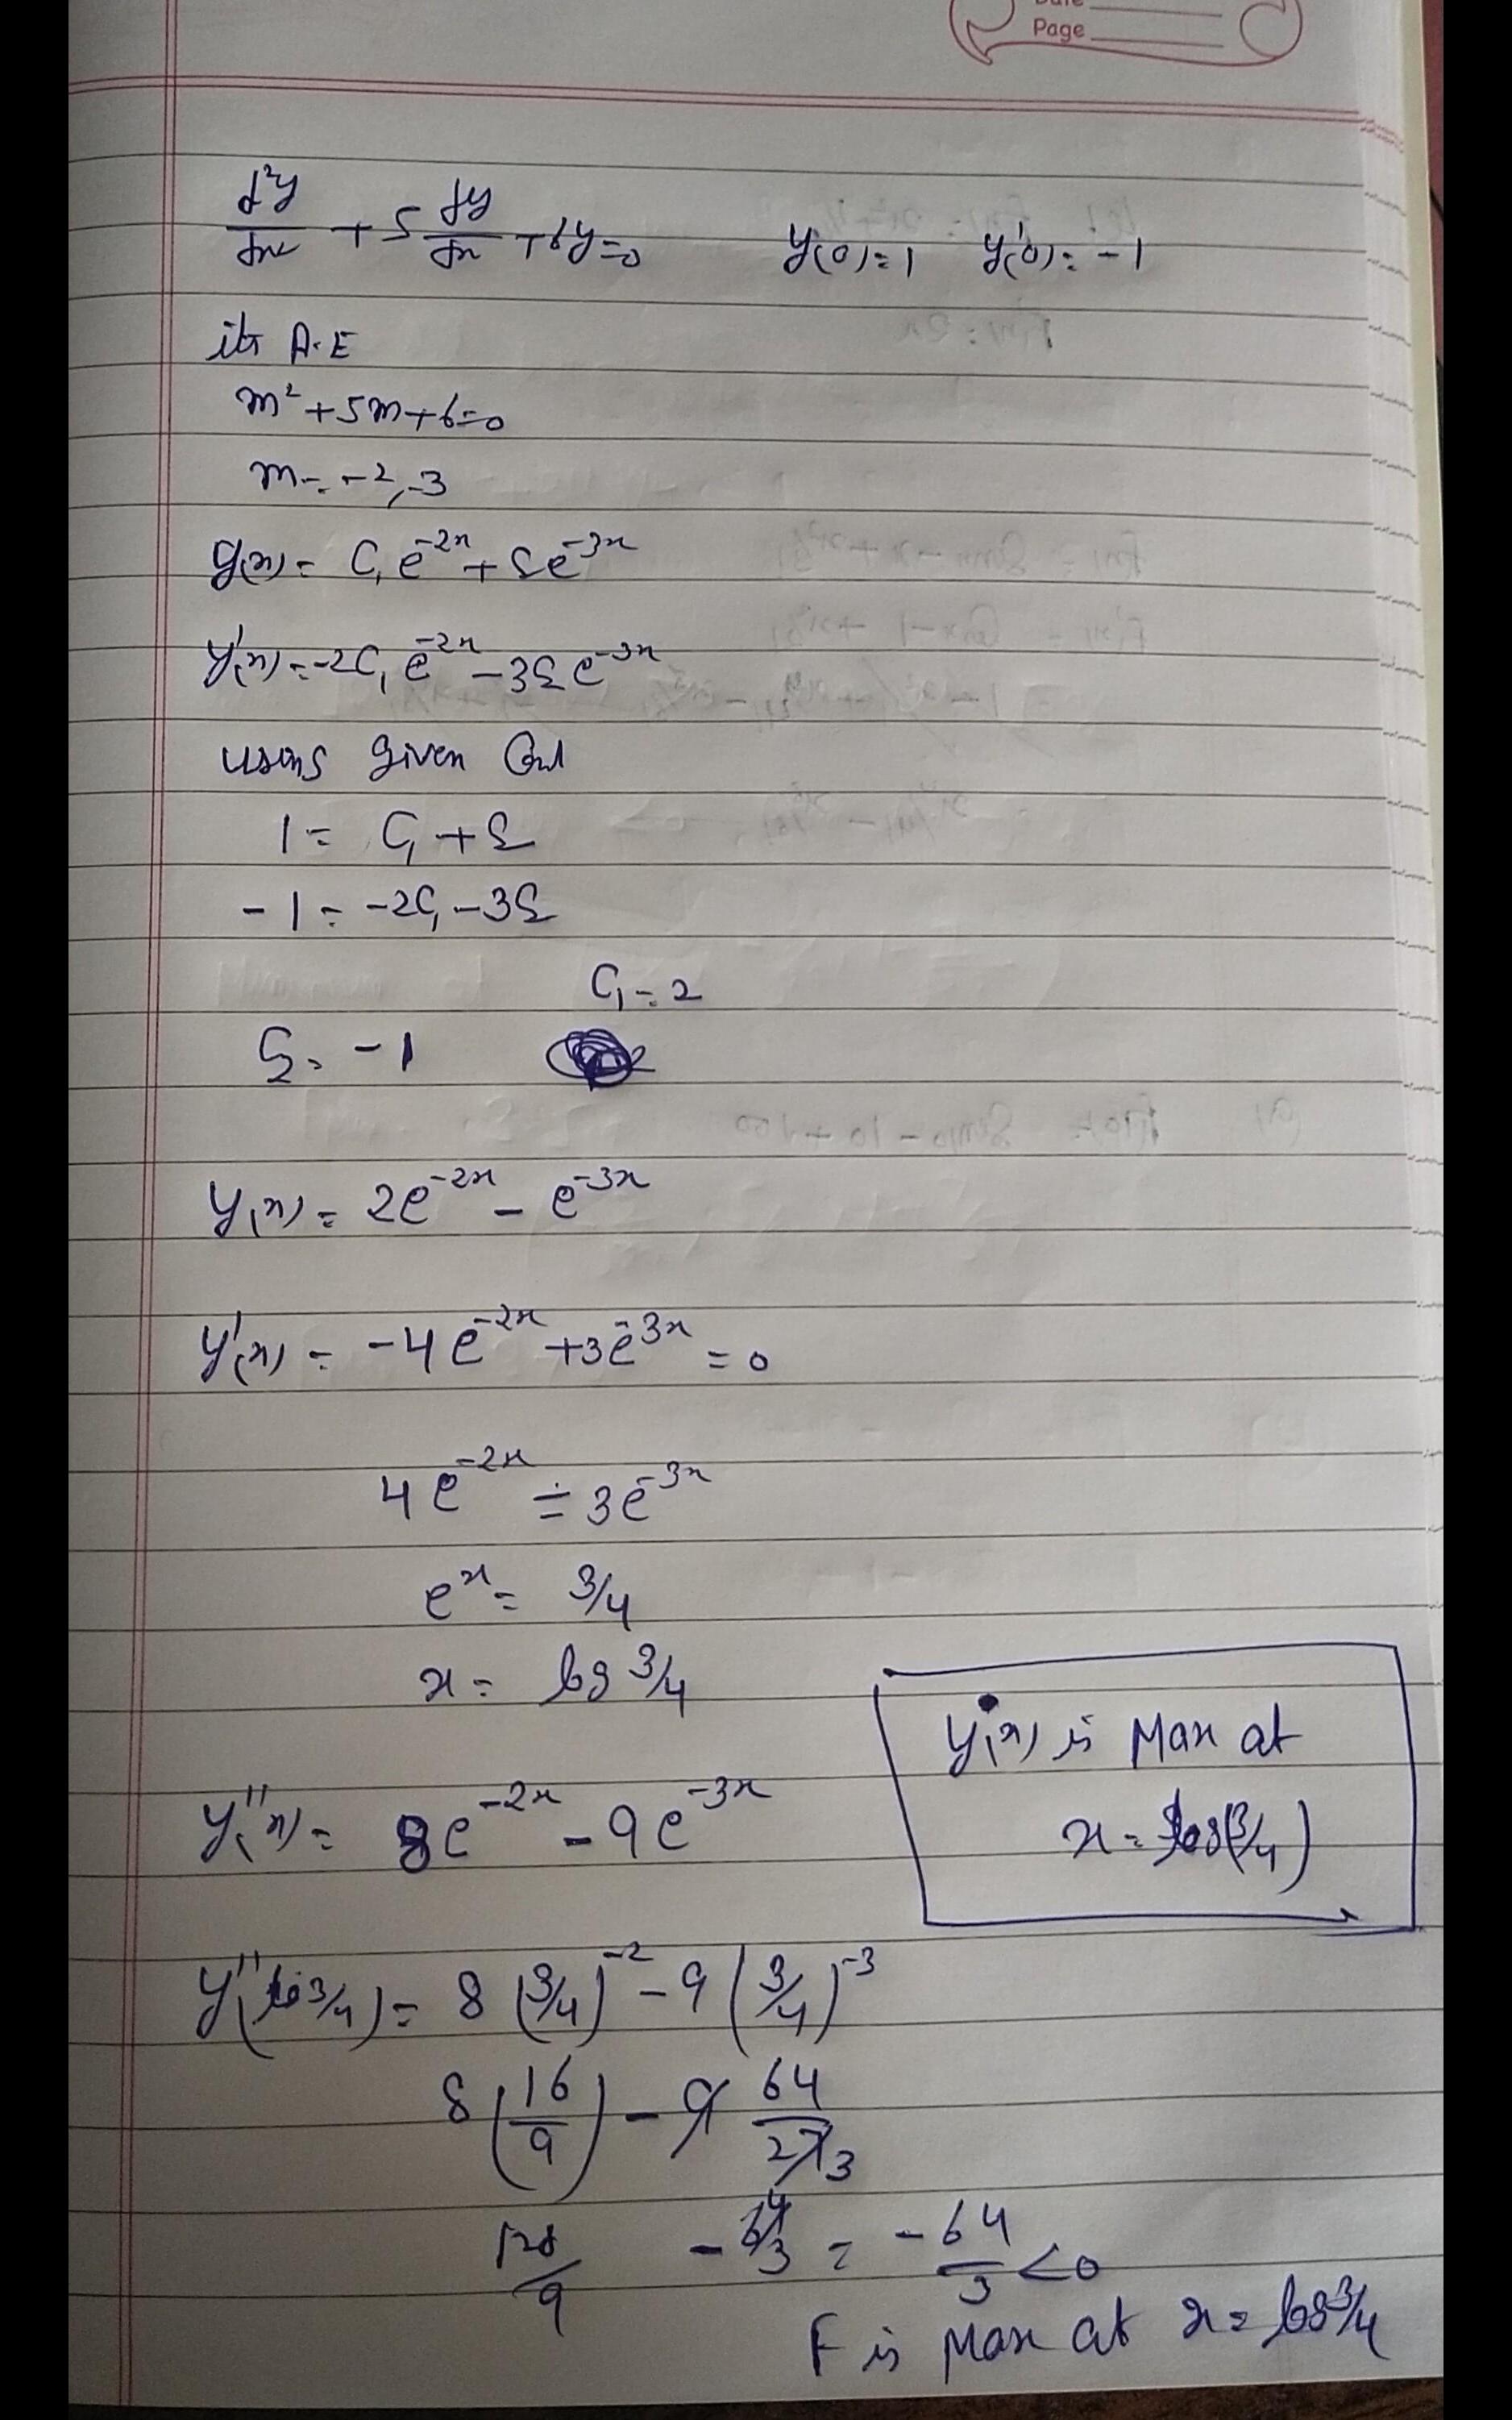 Date
Page
d²y/dx² + 5 dy/dx + 6y = 0 y(0) = 1 y'(0) = -1
its A.E
m² + 5m + 6 = 0
m = -2, -3
y(x) = C₁ e^-2x + C₂ e^-3x
y'(x) = -2C₁ e^-2x - 3C₂ e^-3x
using given Cond
1 = C₁ + C₂
-1 = -2C₁ - 3C₂
C₁ = 2
C₂ = -1
y(x) = 2e^-2x - e^-3x
y'(x) = -4e^-2x + 3e^-3x = 0
4e^-2x = 3e^-3x
e^x = 3/4
x = log 3/4
y(x) is Max at
x = log(3/4)
y''(x) = 8e^-2x - 9e^-3x
y''(log 3/4) = 8 (3/4)^-2 - 9 (3/4)^-3
8 (16/9) - 9 64/27 3
128/9 - 64/3 = -64/3 < 0
F is Max at x = log 3/4